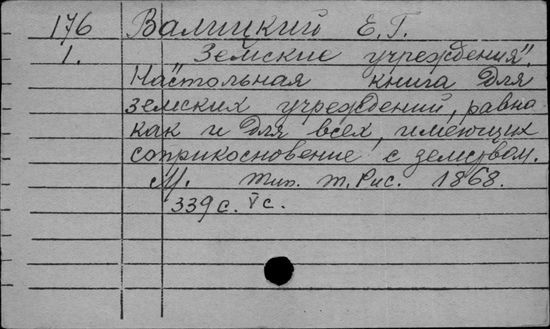 176 Валицкий Е. Г.
1. "Земские учреждения".
Настольная книга для
земских учреждений, равно
как и для всех, имеющих
соприкосновение с земством.
М. тип. Т. Рис. 1868.
339 с. V с.